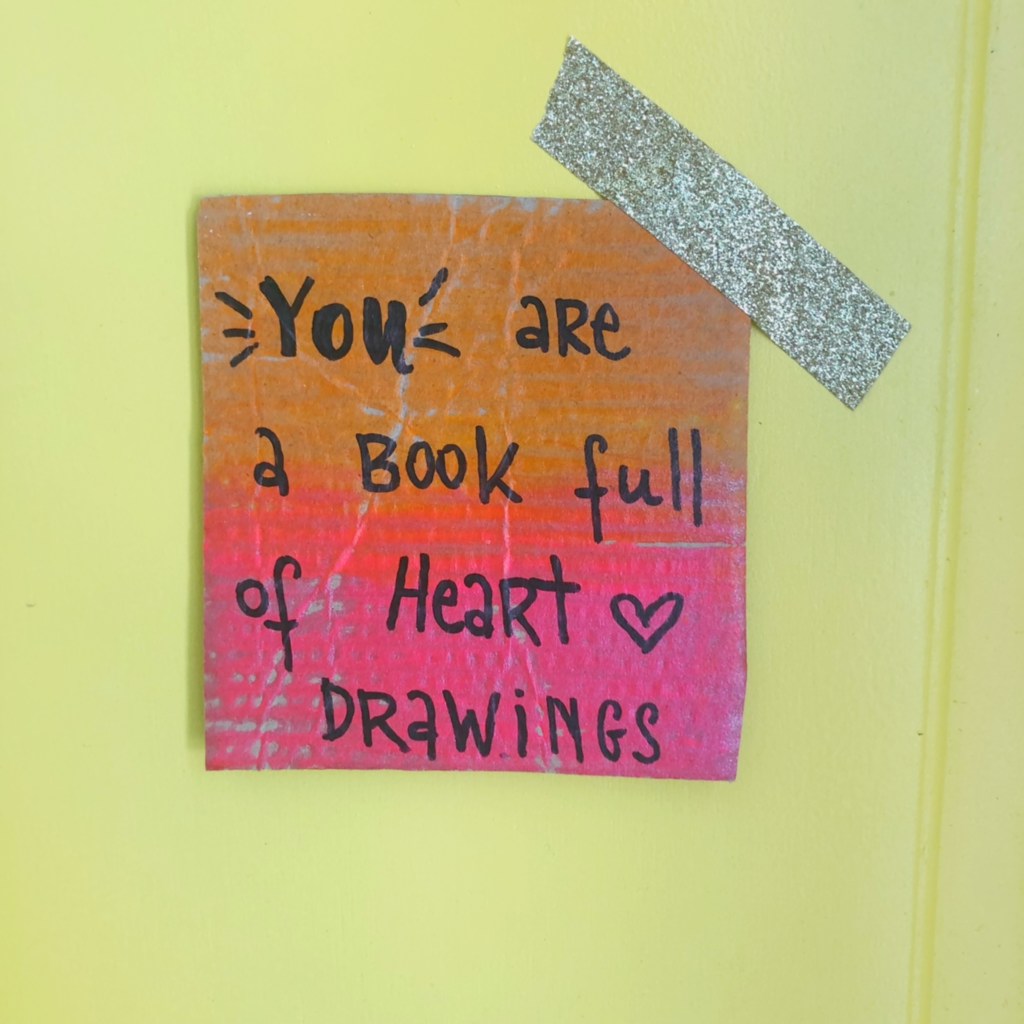 You are
a Book full
of Heart ♡
DRawiNGS